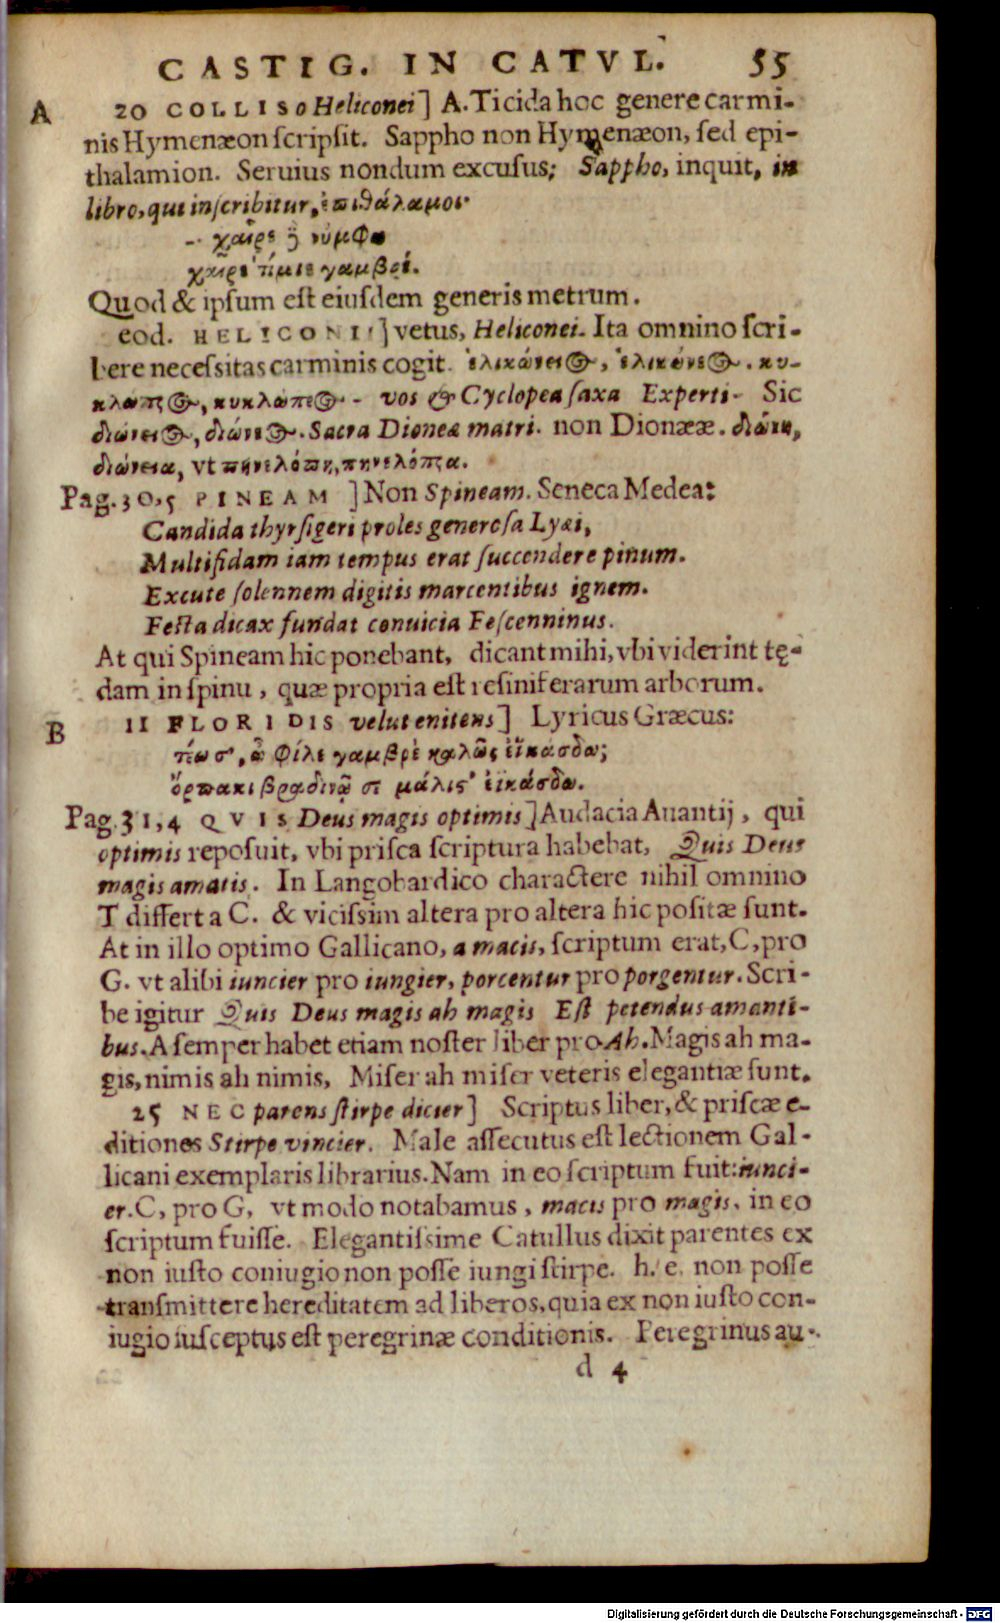 CASTIG. IN CATVL. 55
A 20 COLLISo Heliconei] A. Ticida hoc genere carmi-
nis Hymenæon scripsit. Sappho non Hymenæon, sed epi-
thalamion. Seruius nondum excusus; Sappho, inquit, in
libro, qui inscribitur, ἐπιθάλαμοι·
χαῖρε νύμφα
χαῖρε τίμιε γαμβρέ.
Quod & ipsum est eiusdem generis metrum.
eod. HELICONI'] vetus, Heliconei. Ita omnino scri-
bere necessitas carminis cogit. ἑλικώνειος, ἑλικώνεος. κυ-
κλώπειος, κυκλώπεος - vos & Cyclopea saxa Experti- Sic
διώνειος, διώνεος. Sacra Dioneæ matri. non Dionææ. διώνη,
διώνεια, vt πηνελόπη, πηνελόπεια.
Pag. 30, 5 PINEAM ] Non Spineam. Seneca Medea:
Candida thyrsigeri proles generosa Lyæi,
Multifidam iam tempus erat succendere pinum.
Excute solennem digitis marcentibus ignem.
Festa dicax fundat conuicia Fescenninus.
At qui Spineam hic ponebant, dicant mihi, vbi viderint tę-
dam in spinu, quæ propria est resiniferarum arborum.
B 11 FLORIDIS velut enitens] Lyricus Græcus:
τίῳ σ', ὦ φίλε γαμβρὲ καλῶς ἐϊκάσδω;
ὄρπακι βραδινῷ σε μάλις' ἐϊκάσδω.
Pag. 31, 4 QVIS Deus magis optimis] Audacia Auantij, qui
optimis reposuit, vbi prisca scriptura habebat, Quis Deus
magis amatis. In Langobardico charactere nihil omnino
T differt a C. & vicissim altera pro altera hic positæ sunt.
At in illo optimo Gallicano, a macis, scriptum erat, C, pro
G. vt alibi iuncier pro iungier, porcentur pro porgentur. Scri-
be igitur Quis Deus magis ah magis Est petendus amanti-
bus. A semper habet etiam noster liber pro Ah. Magis ah ma-
gis, nimis ah nimis, Miser ah miser veteris elegantiæ sunt.
25 NEC parens stirpe dicier] Scriptus liber, & priscæ e-
ditiones Stirpe vincier. Male assecutus est lectionem Gal-
licani exemplaris librarius. Nam in eo scriptum fuit: iunci-
er. C, pro G, vt modo notabamus, macis pro magis, in eo
scriptum fuisse. Elegantissime Catullus dixit parentes ex
non iusto coniugio non posse iungi stirpe. h. e. non posse
transmittere hereditatem ad liberos, quia ex non iusto con-
iugio susceptus est peregrinæ conditionis. Peregrinus au-
d 4
Digitalisierung gefördert durch die Deutsche Forschungsgemeinschaft - DFG